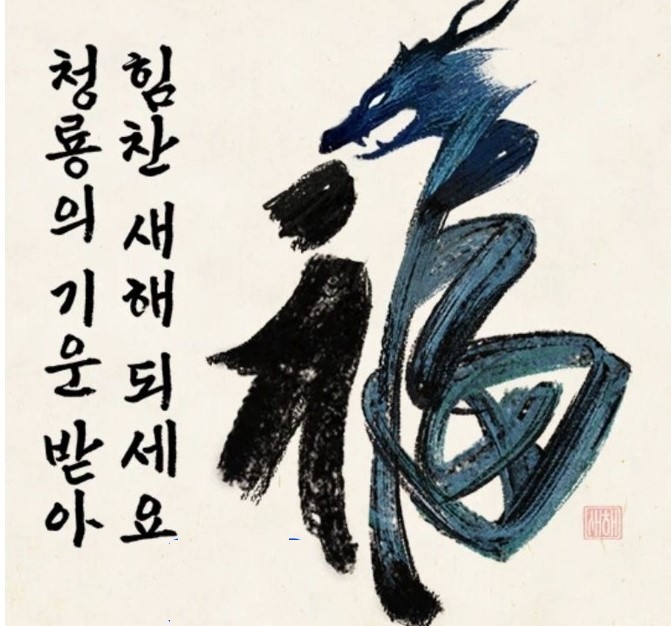 청룡의 기운 받아
힘찬 새해 되세요
福
새해